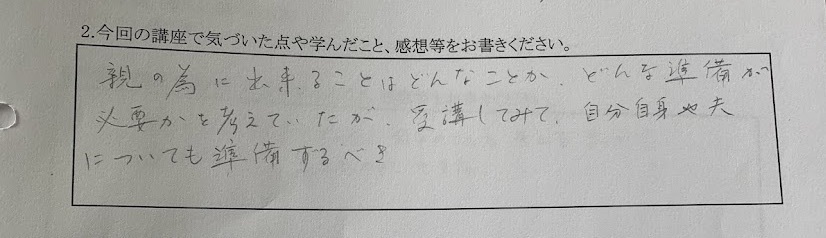 2.今回の講座で気づいた点や学んだこと、感想等をお書きください。
親の為に出来ることはどんなことか、どんな準備が
必要かを考えていたが、受講してみて、自分自身や夫
についても準備するべき